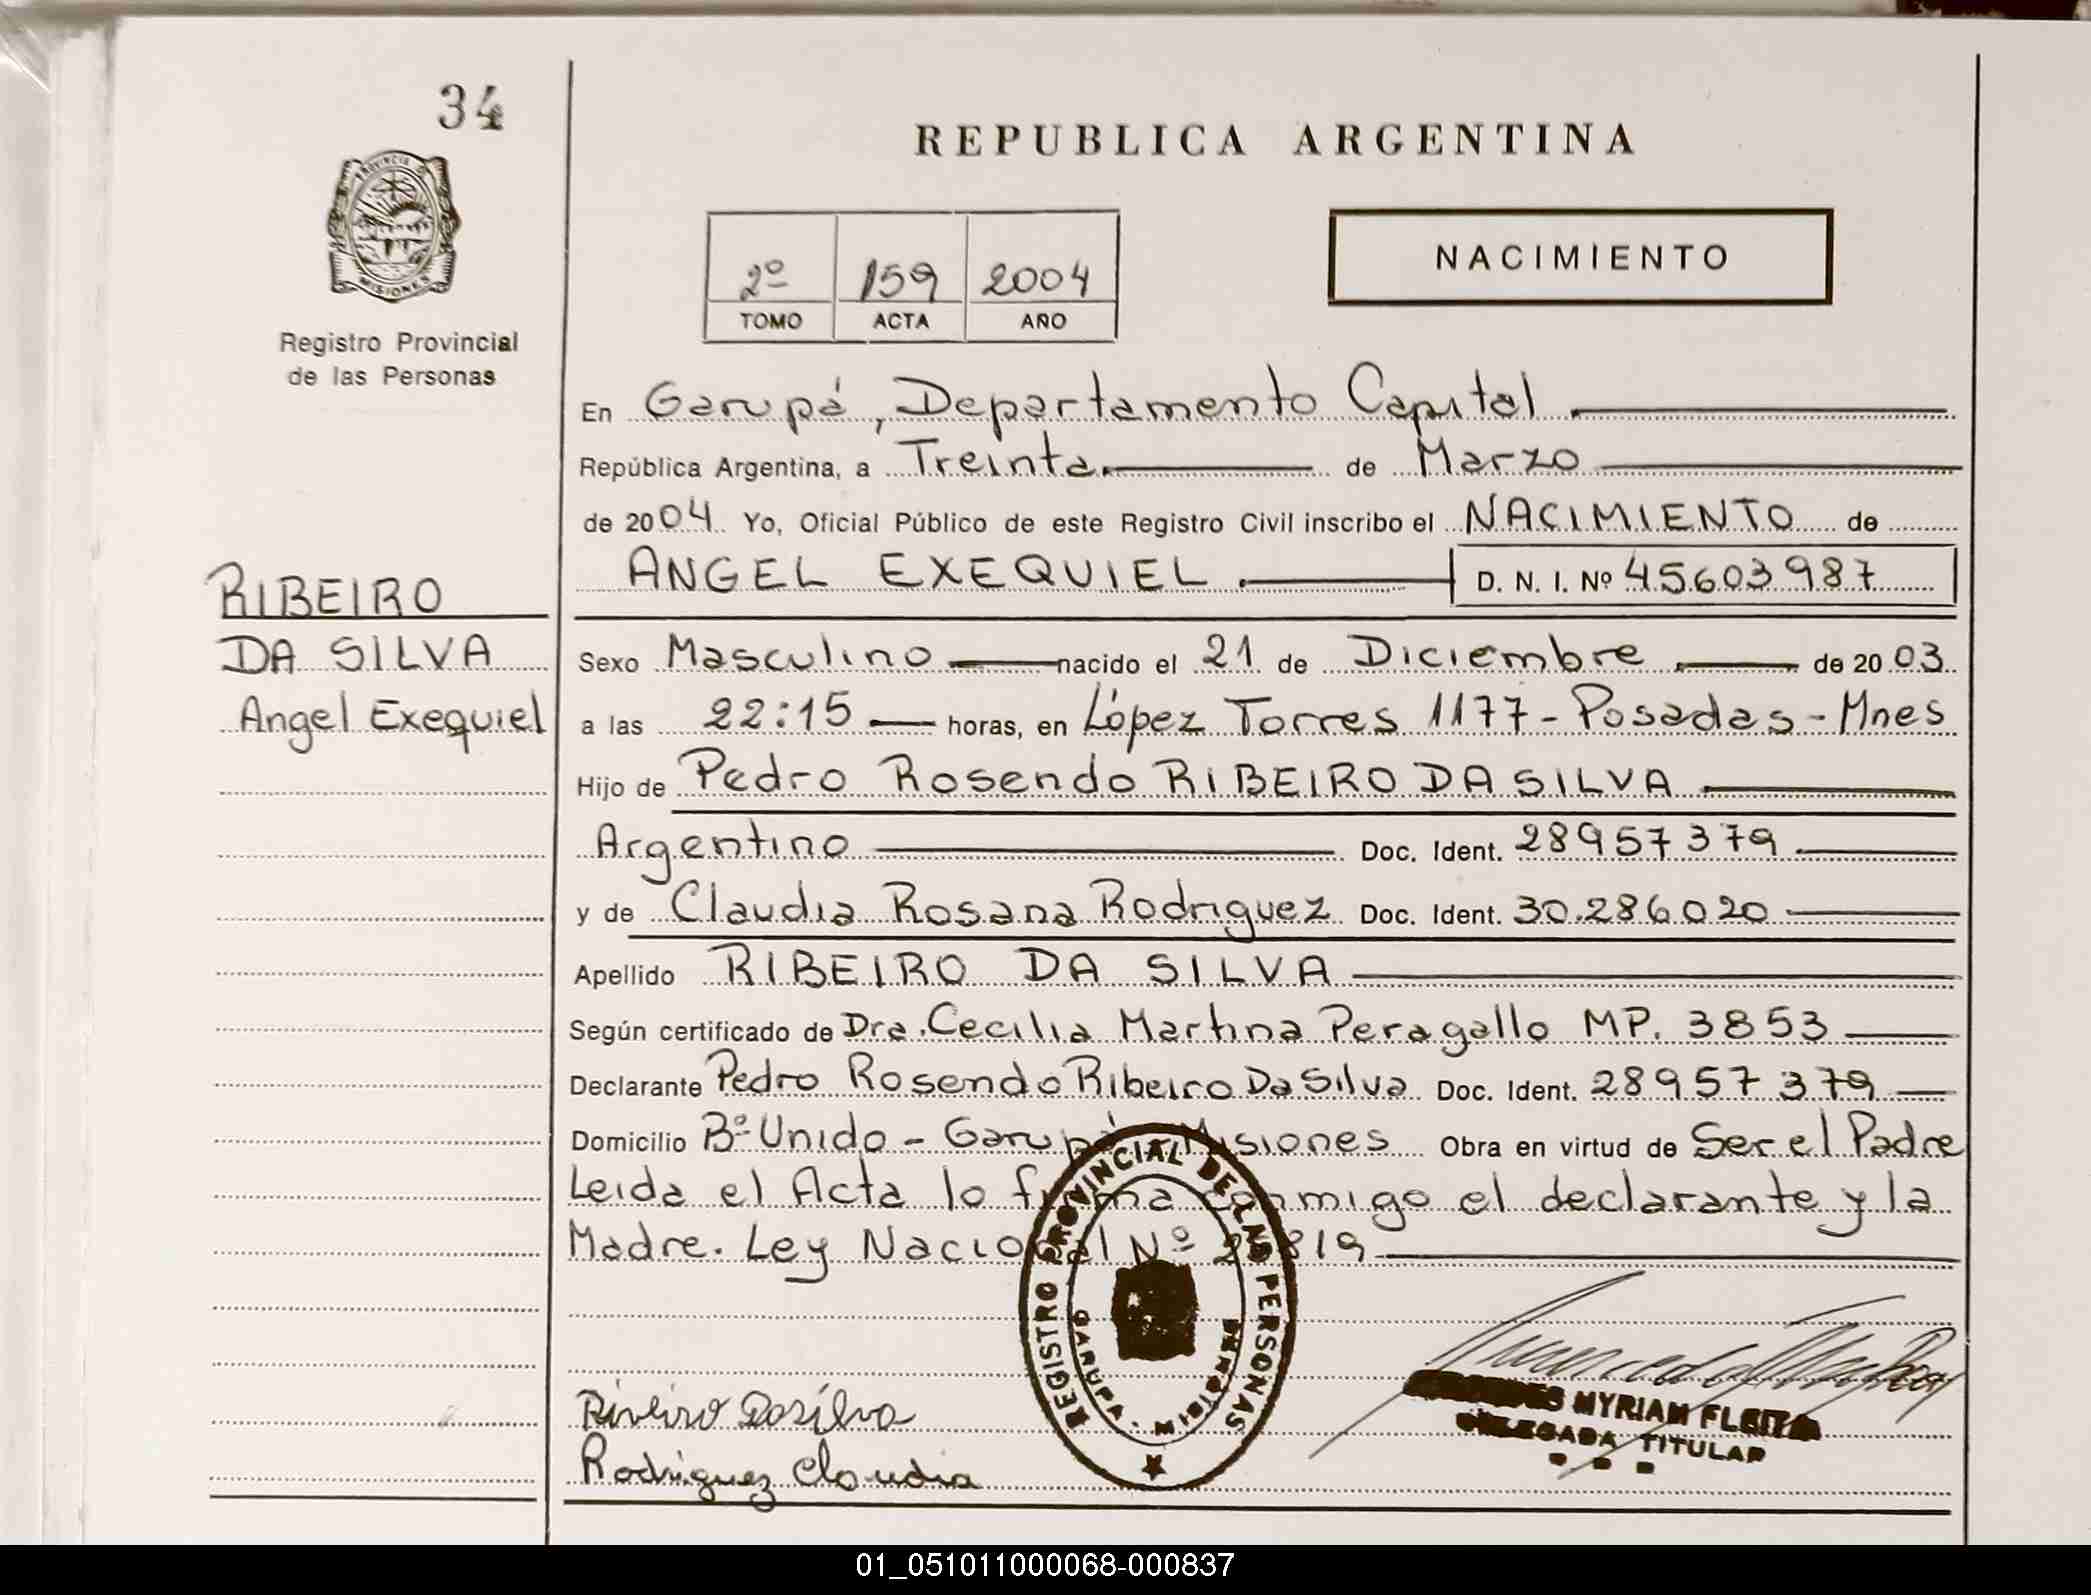 34
REPUBLICA ARGENTINA
PROVINCIA DE
MISIONES
Registro Provincial
de las Personas
NACIMIENTO
2º 159 2004
TOMO ACTA AÑO
En Garupá, Departamento Capital
República Argentina, a Treinta de Marzo
de 2004 Yo, Oficial Público de este Registro Civil inscribo el NACIMIENTO de
ANGEL EXEQUIEL D. N. I. Nº 45603987
RIBEIRO
DA SILVA
Angel Exequiel
Sexo Masculino nacido el 21 de Diciembre de 2003
a las 22:15 horas, en López Torres 1177 - Posadas - Mnes
Hijo de Pedro Rosendo RIBEIRO DA SILVA
Argentino Doc. Ident. 28957379
y de Claudia Rosana Rodriguez Doc. Ident. 30.286020
Apellido RIBEIRO DA SILVA
Según certificado de Dra. Cecilia Martina Peragallo MP. 3853
Declarante Pedro Rosendo Ribeiro Da Silva Doc. Ident. 28957379
Domicilio Bº Unido - Garupá Misiones Obra en virtud de Ser el Padre
Leida el Acta lo firma conmigo el declarante y la
Madre. Ley Nacional Nº
REGISTRO PROVINCIAL DE LAS PERSONAS
GARUPA - MISIONES
Riveiro Dasilva
Rodriguez Claudia
MYRIAM FLEITA
DELEGADA TITULAR
01_051011000068-000837